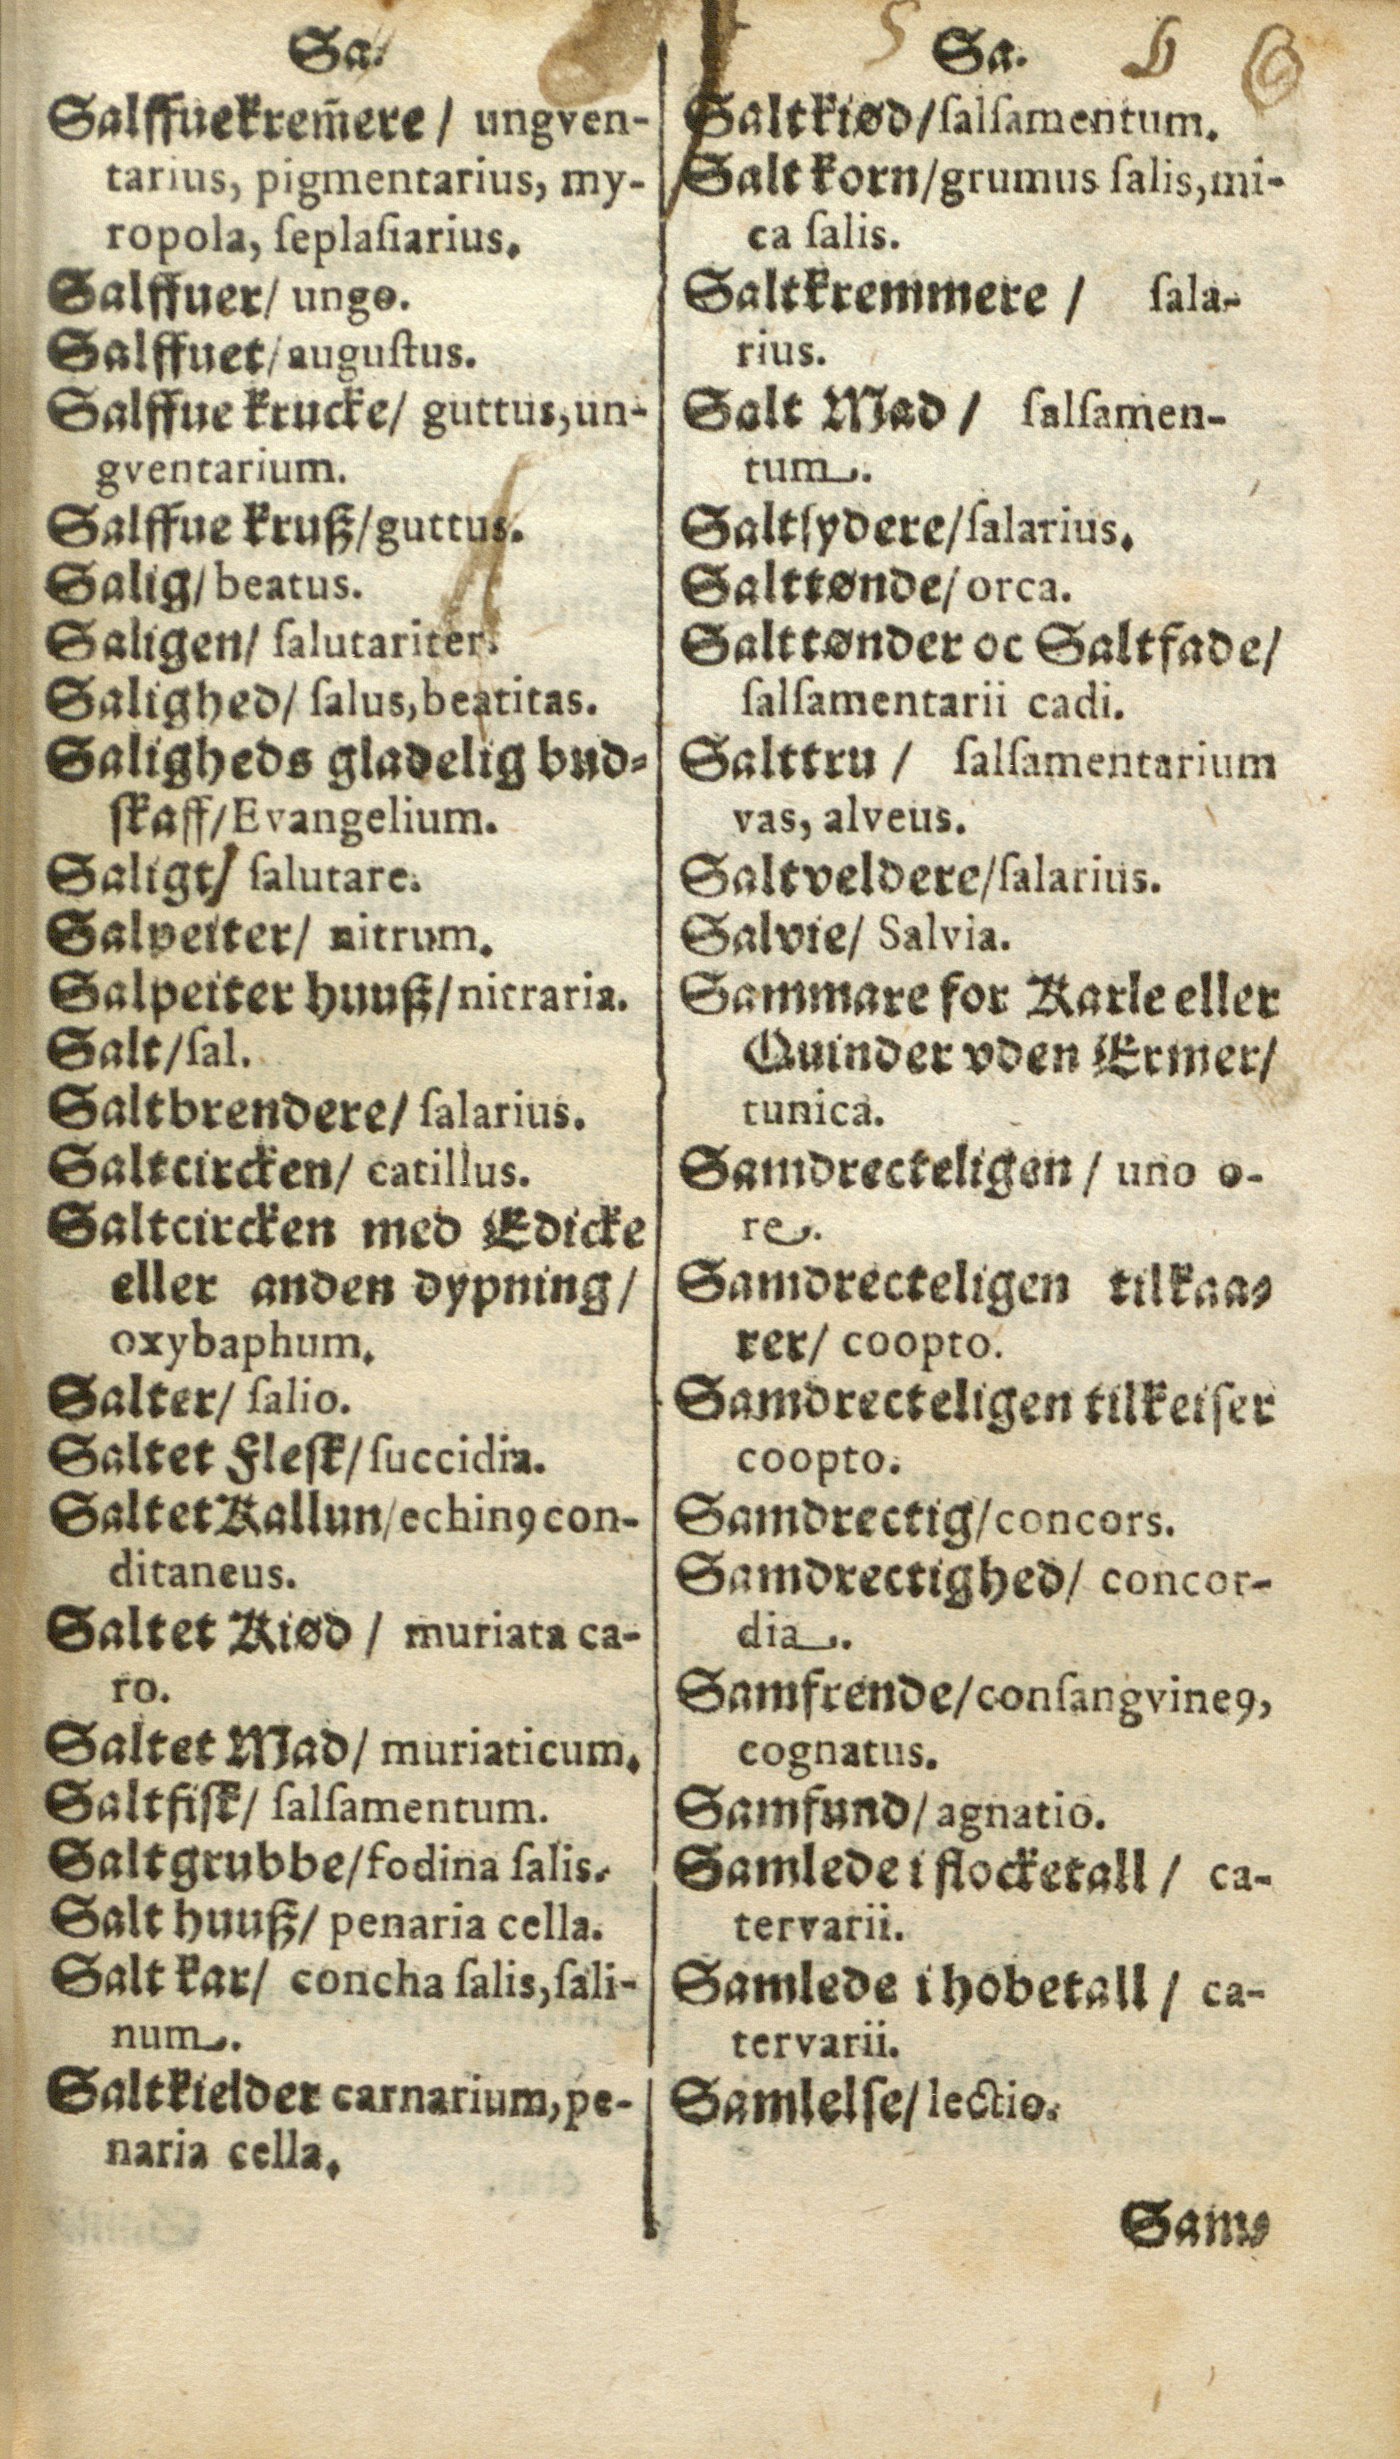 Sa.
Salffuekrem̃ere / ungven-
tarius, pigmentarius, my-
ropola, ſeplaſiarius.
Salffuer/ ungo.
Salffuet/ auguſtus.
Salffue krucke/ guttus, un-
gventarium.
Salffue kruß/guttus.
Salig/ beatus.
Saligen/ ſalutariter.
Salighed/ ſalus, beatitas.
Saligheds gladelig bud-
ſkaff/Evangelium.
Saligt/ ſalutare.
Salpeiter/ nitrum.
Salpeiter huuß/nitraria.
Salt/ſal.
Saltbrendere/ ſalarius.
Saltcircken/ catillus.
Saltcircken med Edicke
eller anden dypning/
oxybaphum.
Salter/ ſalio.
Saltet Fleſk/ſuccidia.
Saltet Kallun/echinꝰ con-
ditaneus.
Saltet Kiød / muriata ca-
ro.
Saltet Mad/ muriaticum.
Saltfiſk/ ſalſamentum.
Saltgrubbe/fodina ſalis.
Salt huuß/ penaria cella.
Salt kar/ concha ſalis, ſali-
num.
Saltkielder carnarium, pe-
naria cella.
Sa.
Saltkiød/ſalſamentum.
Salt korn/grumus ſalis, mi-
ca ſalis.
Saltkremmere / ſala-
rius.
Salt Mad / ſalſamen-
tum.
Saltſydere/ſalarius.
Salttønde/ orca.
Salttønder oc Saltfade/
ſalſamentarii cadi.
Salttru / ſalſamentarium
vas, alveus.
Saltveldere/ſalarius.
Salvie/ Salvia.
Sammare for Karle eller
Quinder vden Ermer/
tunica.
Samdrecteligen / uno o-
re.
Samdrecteligen tilkaa-
rer/ coopto.
Samdrecteligen tilkeiſer
coopto.
Samdrectig/concors.
Samdrectighed/ concor-
dia.
Samfrende/conſangvineꝰ,
cognatus.
Samfund/ agnatio.
Samlede i flocketall / ca-
tervarii.
Samlede i hobetall / ca-
tervarii.
Samlelſe/ lectio.
Sam-